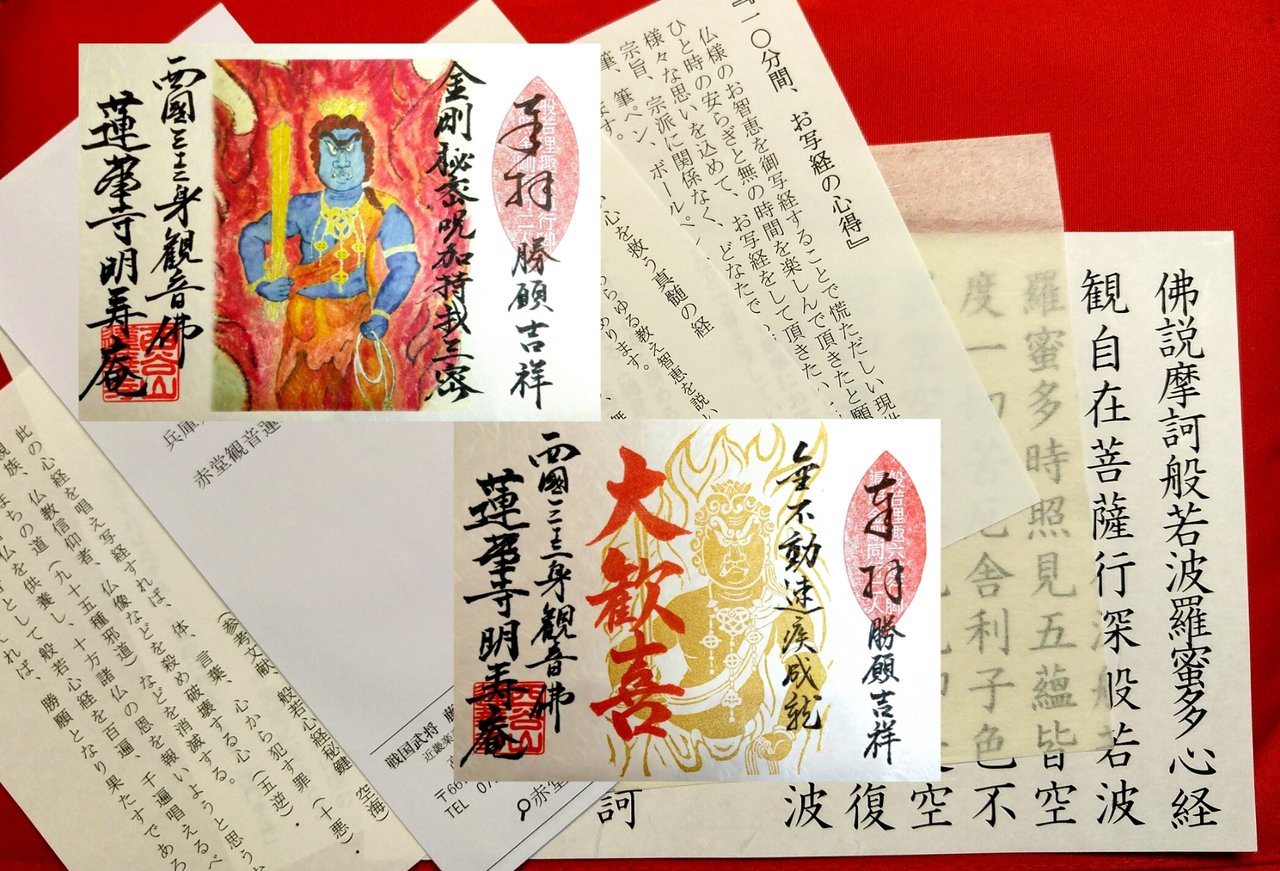 奉拝
勝願吉祥
金剛秘密呪加持我三密
西國三十三身觀音佛
蓮華寺明寿庵
奉拝
勝願吉祥
金不動速疾成就
大歓喜
西國三十三身觀音佛
蓮華寺明寿庵
『一〇分間、お写経の心得』
仏様のお智恵を御写経することで慌ただしい現世
ひと時の安らぎと無の時間を楽しんで頂きたいと願
様々な思いを込めて、お写経をして頂きたい
宗旨、宗派に関係なく、どなたで
筆、筆ペン、ボールペン
ます。
心を救う真髄の経
らゆる教え智恵を説い
あります。
佛説摩訶般若波羅蜜多心経
観自在菩薩行深般若波
羅蜜多時照見五蘊皆空
度一切
舍利子色不
空
復
波
訶
兵庫
赤堂観音蓮
戦国武将 藤
近畿楽
〒667
TEL 07
赤堂
（参考文献、般若心経秘鍵 空海）
此の心経を唱え写経すれば、体、言葉、心から犯す罪（十悪）・
仏像などを殺め破壊する心（五逆）・
仏教信仰者、（九十五種邪道）などを消滅する。
仏の道を供養し、十方諸仏の恩を報いようと思うな
般若心経を百遍、千遍唱えるべ
として
れば、勝願となり果たすであろ